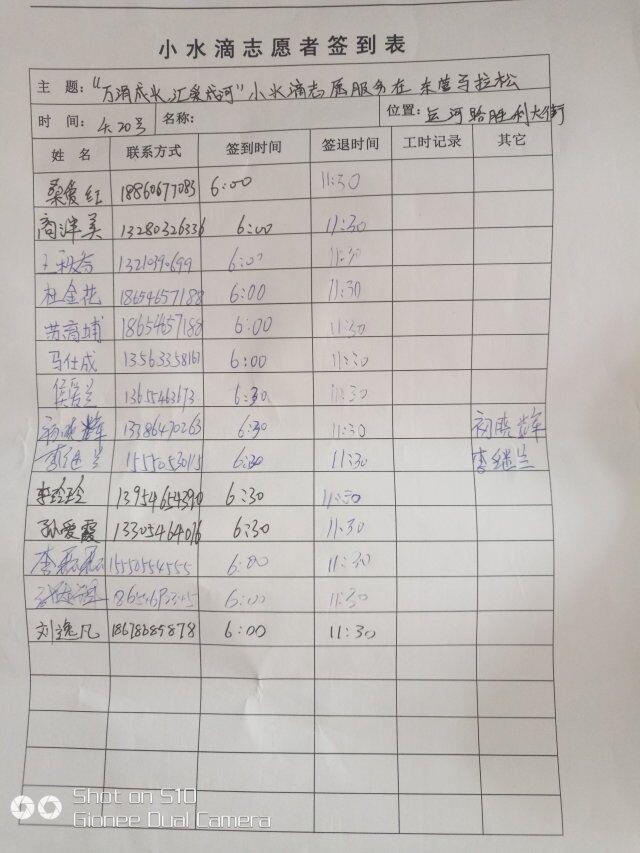 小水滴志愿者签到表
主 题：“万涓成水,汇爱成河”小水滴志愿服务在 东营马拉松
时 间：4.20号 名称： 位置：运河路胜利大街
姓 名 联系方式 签到时间 签退时间 工时记录 其它
桑爱红 18860677083 6:00 11:30
商洋美 13280326336 6:00 11:30
6:00 11:30
杜金花 18654657188 6:00 11:30
苏高埔 18654657188 6:00 11:30
马仕成 13563358161 6:00 11:30
侯爱兰 13655463673 6:30 11:30
初晓辉 13386470263 6:30 11:30 初晓辉
李继兰 15550530115 6:30 11:30 李继兰
李玲玲 13954654390 6:30 11:30
孙爱霞 13305464076 6:30 11:30
李磊磊 15550554555 6:00 11:30
6:00 11:30
刘逸凡 18678689878 6:00 11:30
Shot on S10
Gionee Dual Camera